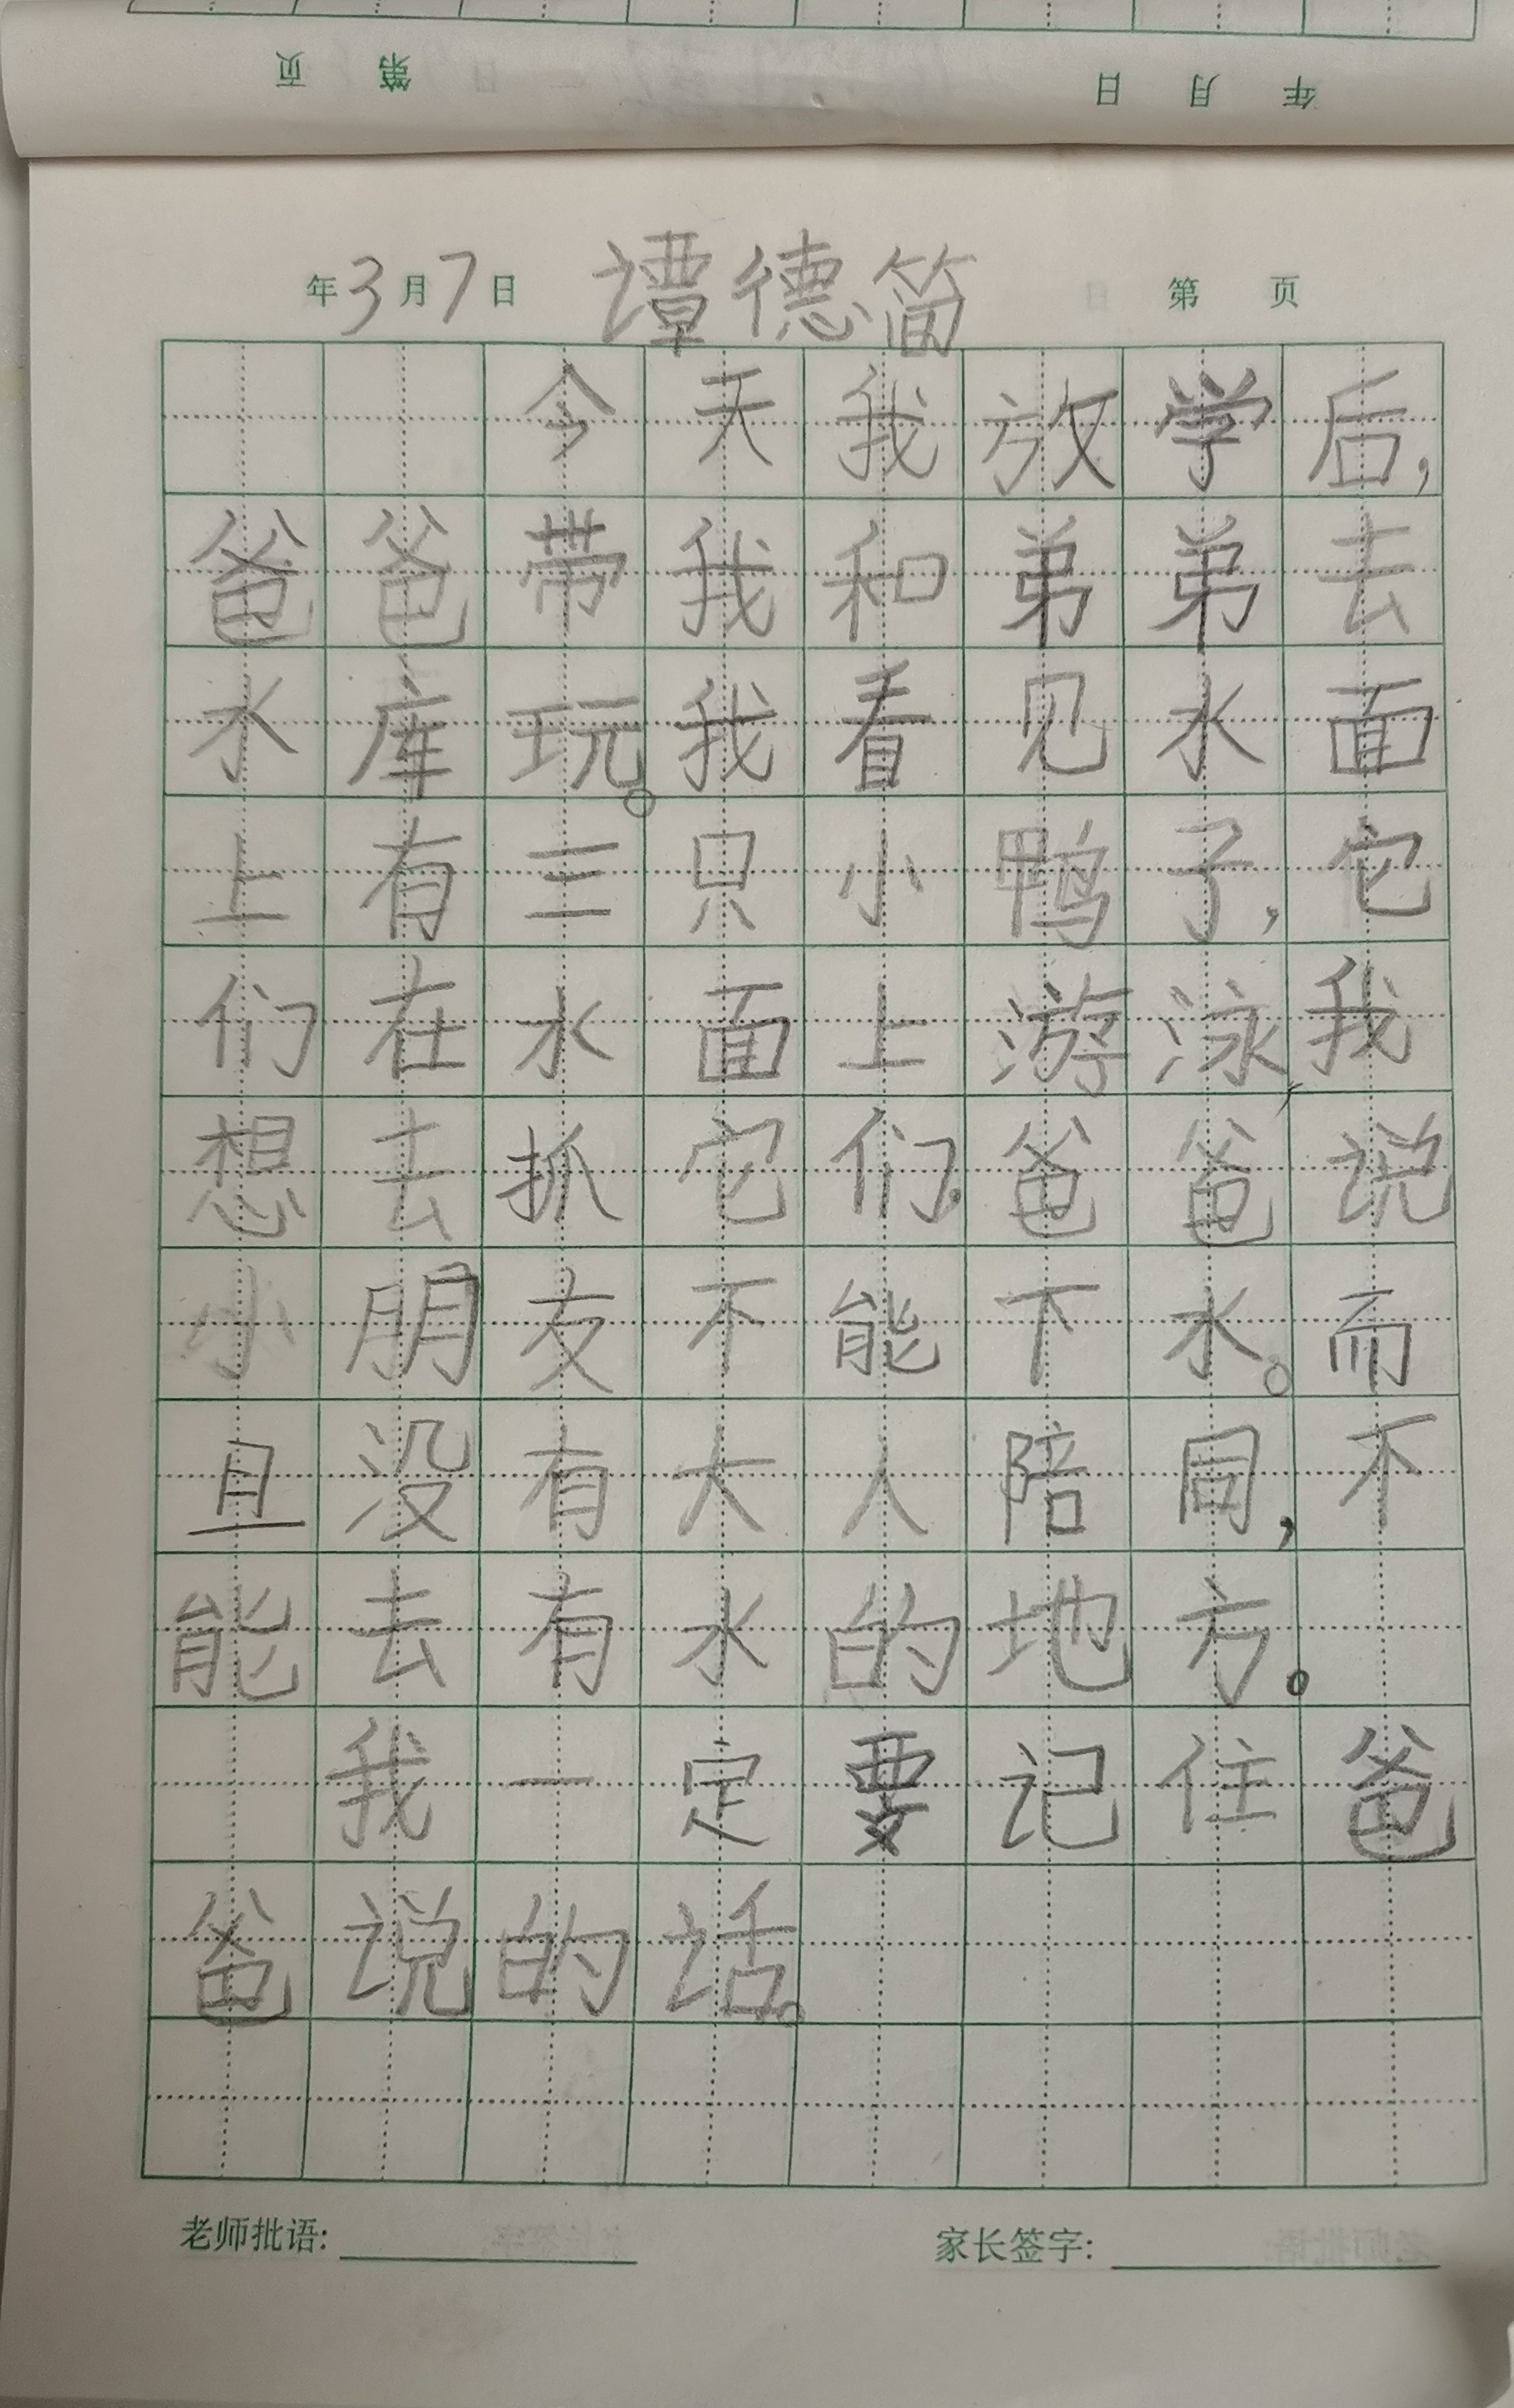 页 第 日 月 年
年3月7日 谭德简 第 页
今天我放学后,
爸爸带我和弟弟去
水库玩。我看见水面
上有三只小鸭子,它
们在水面上游泳,我
想去抓它们。爸爸说
小朋友不能下水。而
且没有大人陪同,不
能去有水的地方。
我一定要记住爸
爸说的话。
老师批语: 家长签字: